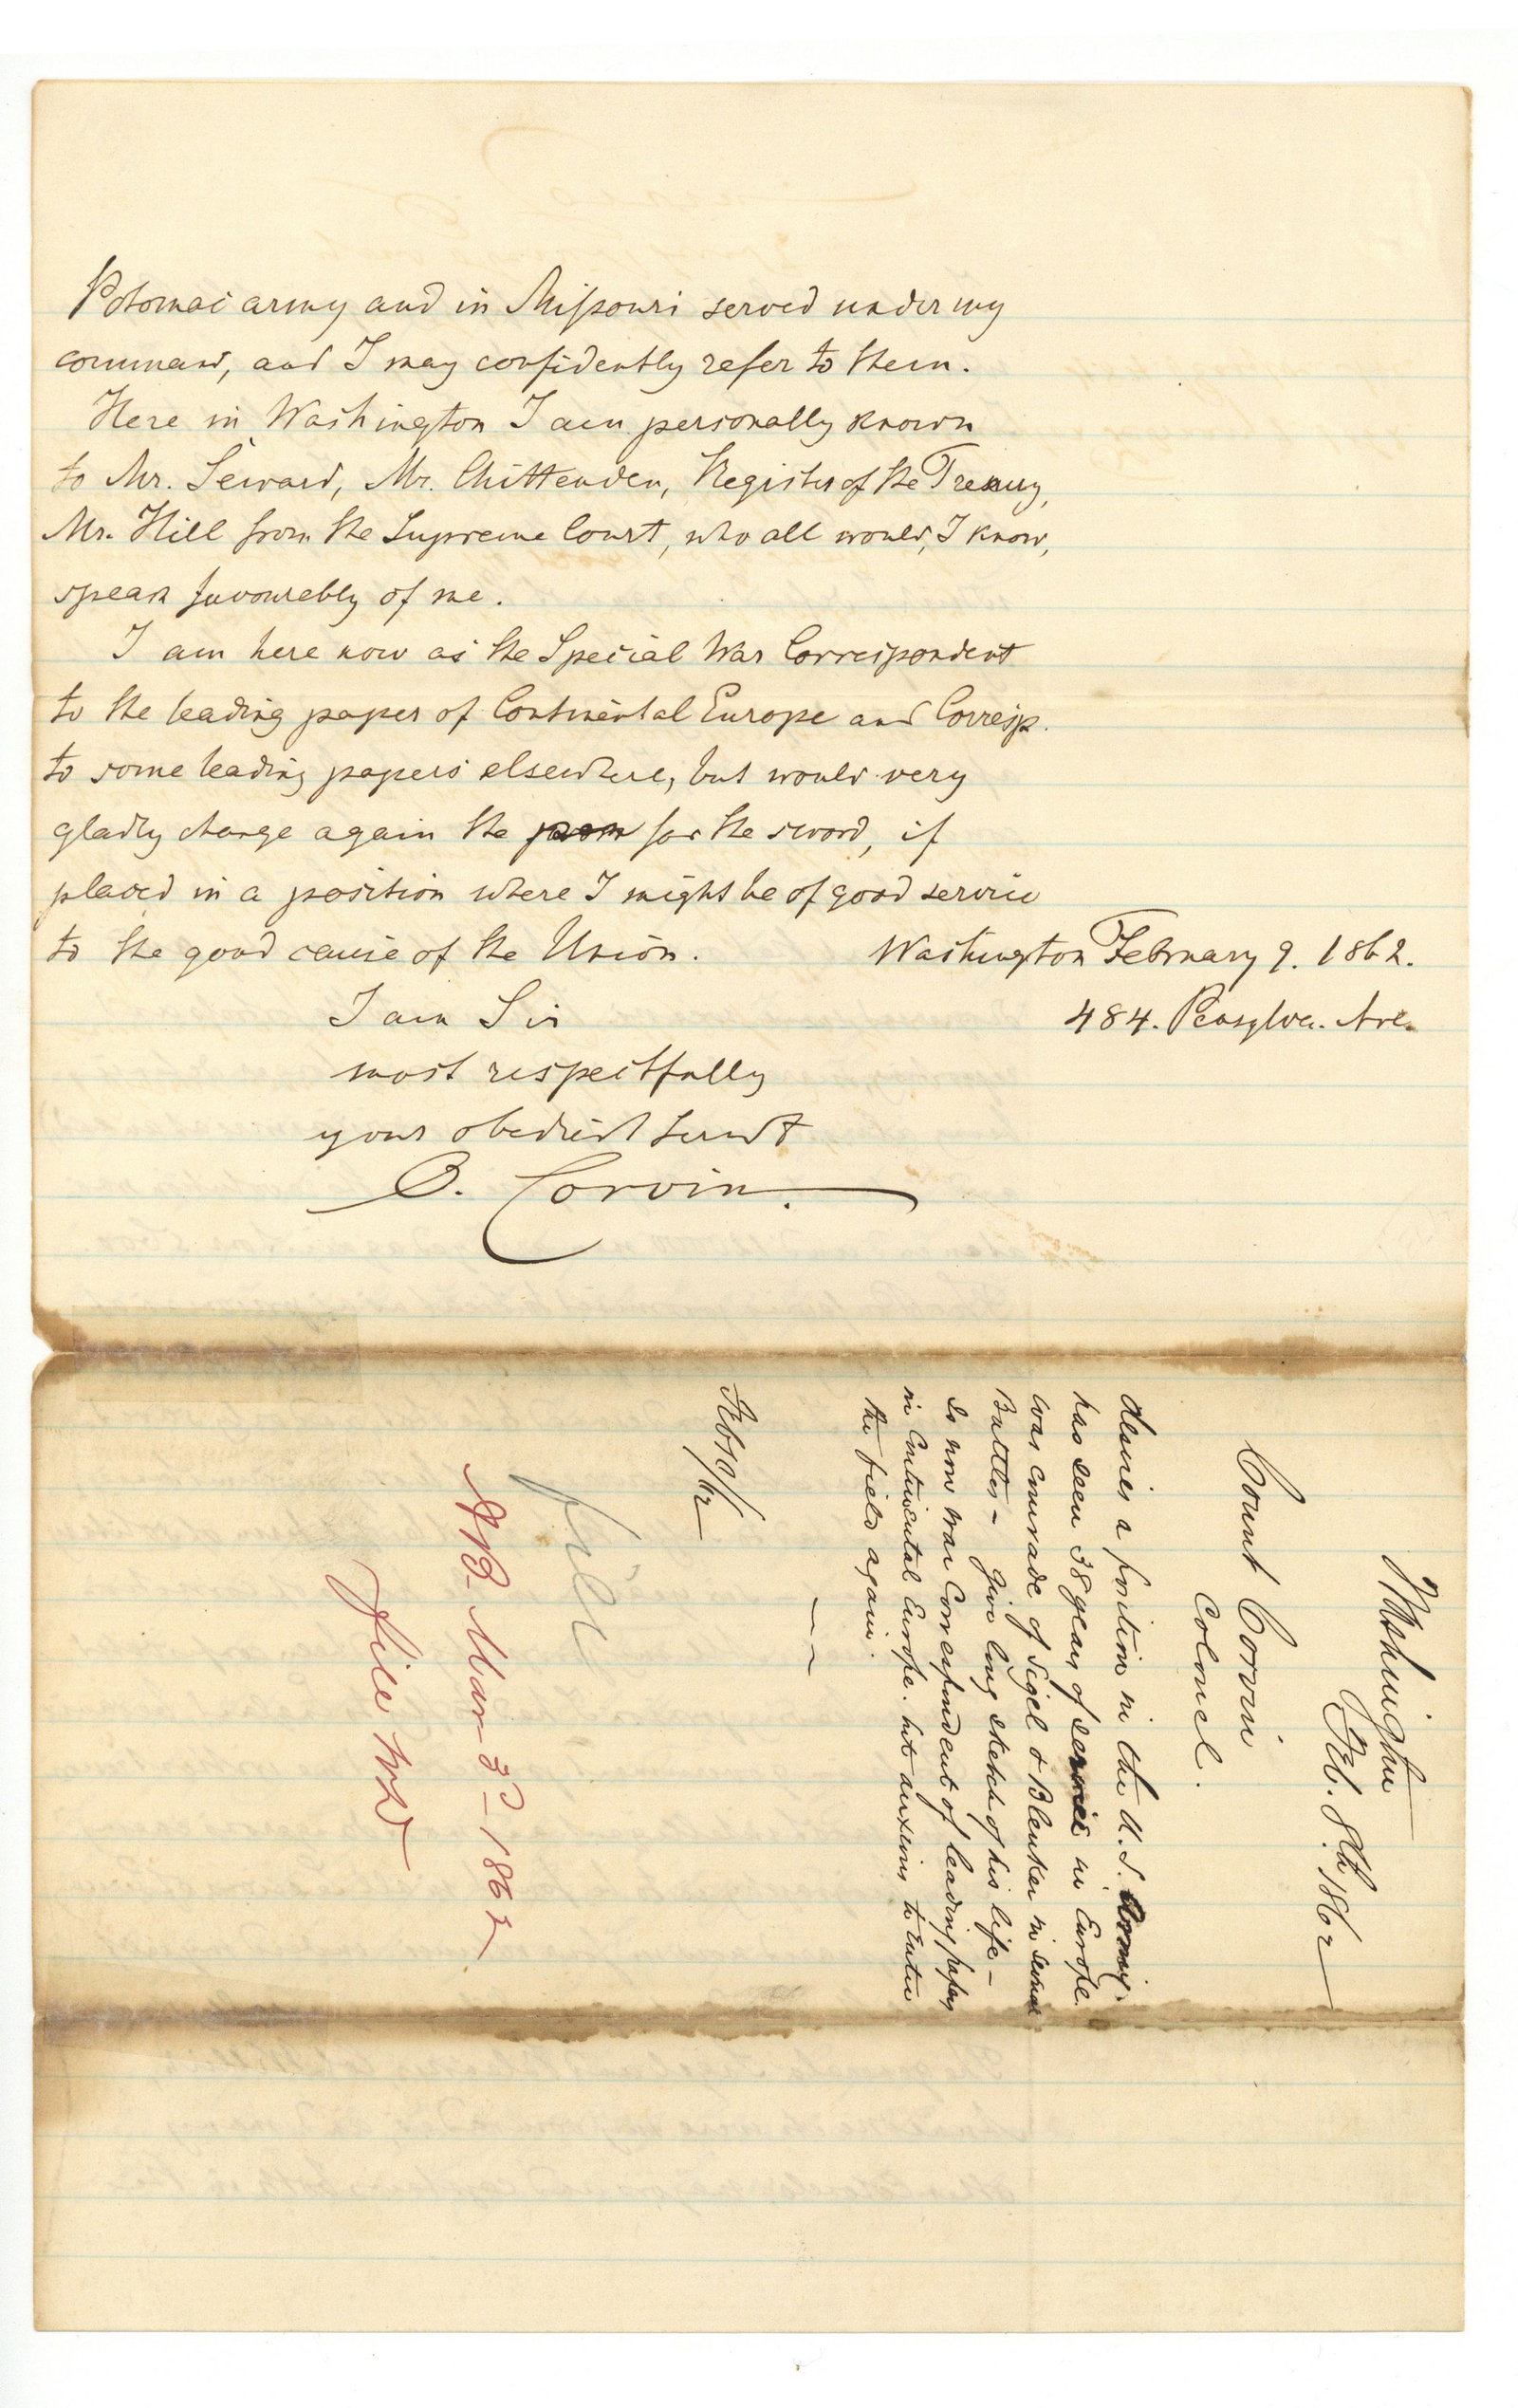 Potomac army and in Missouri served under my
command, and I may confidently refer to them.
Here in Washington I am personally known
to Mr. Seward, Mr. Chittenden, Register of the Tresury,
Mr. Hill from the Supreme Court, who all would, I know,
speak favourably of me.
I am here now as the Special War Correspondent
to the leading paper of Continental Europe and Corresp.
to some leading papers elsewhere, but would very
gladly change again the pen for the sword, if
placed in a position where I might be of good service
to the good cause of the Union.
Washington February 9. 1862.
484. Pensylva. Ave.
I am Sir
most respectfully
your obedient servt
O. Corvin.
Washington
Feb. 8th 1862
Count Corvin
Colonel.
desires a position in the U.S. Army.
has seen 38 years of service in Europe.
was comrade of Sigel & Blenker in several
Battles - Give long sketch of his life -
Is now war Correspondent of leading papers
in Continental Europe. but anxious to enter
the field again.
Feb 10/62
file
AB Mar 3d 1862
File